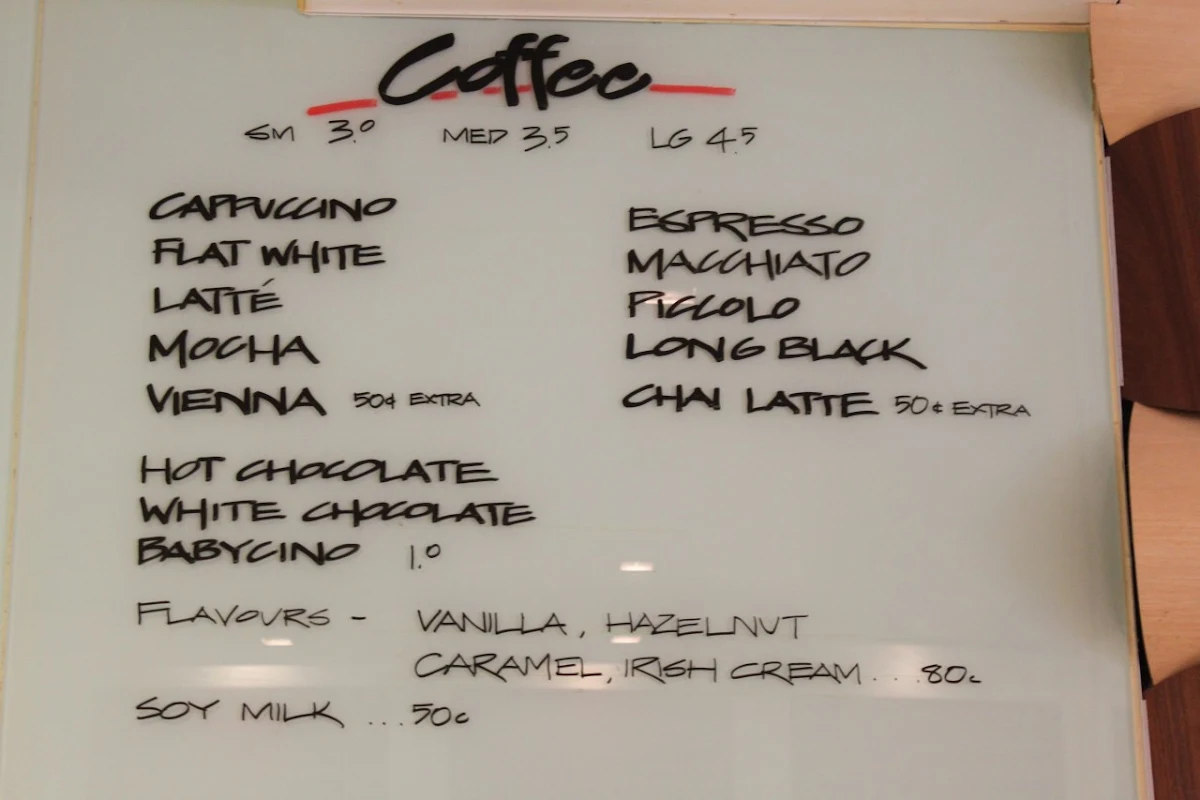 Coffee
SM 3.0 MED 3.5 LG 4.5
CAPPUCCINO
FLAT WHITE
LATTÉ
MOCHA
VIENNA 50¢ EXTRA
ESPRESSO
MACCHIATO
PICCOLO
LONG BLACK
CHAI LATTE 50¢ EXTRA
HOT CHOCOLATE
WHITE CHOCOLATE
BABYCINO 1.0
FLAVOURS - VANILLA, HAZELNUT
CARAMEL, IRISH CREAM... .80c
SOY MILK ...50c